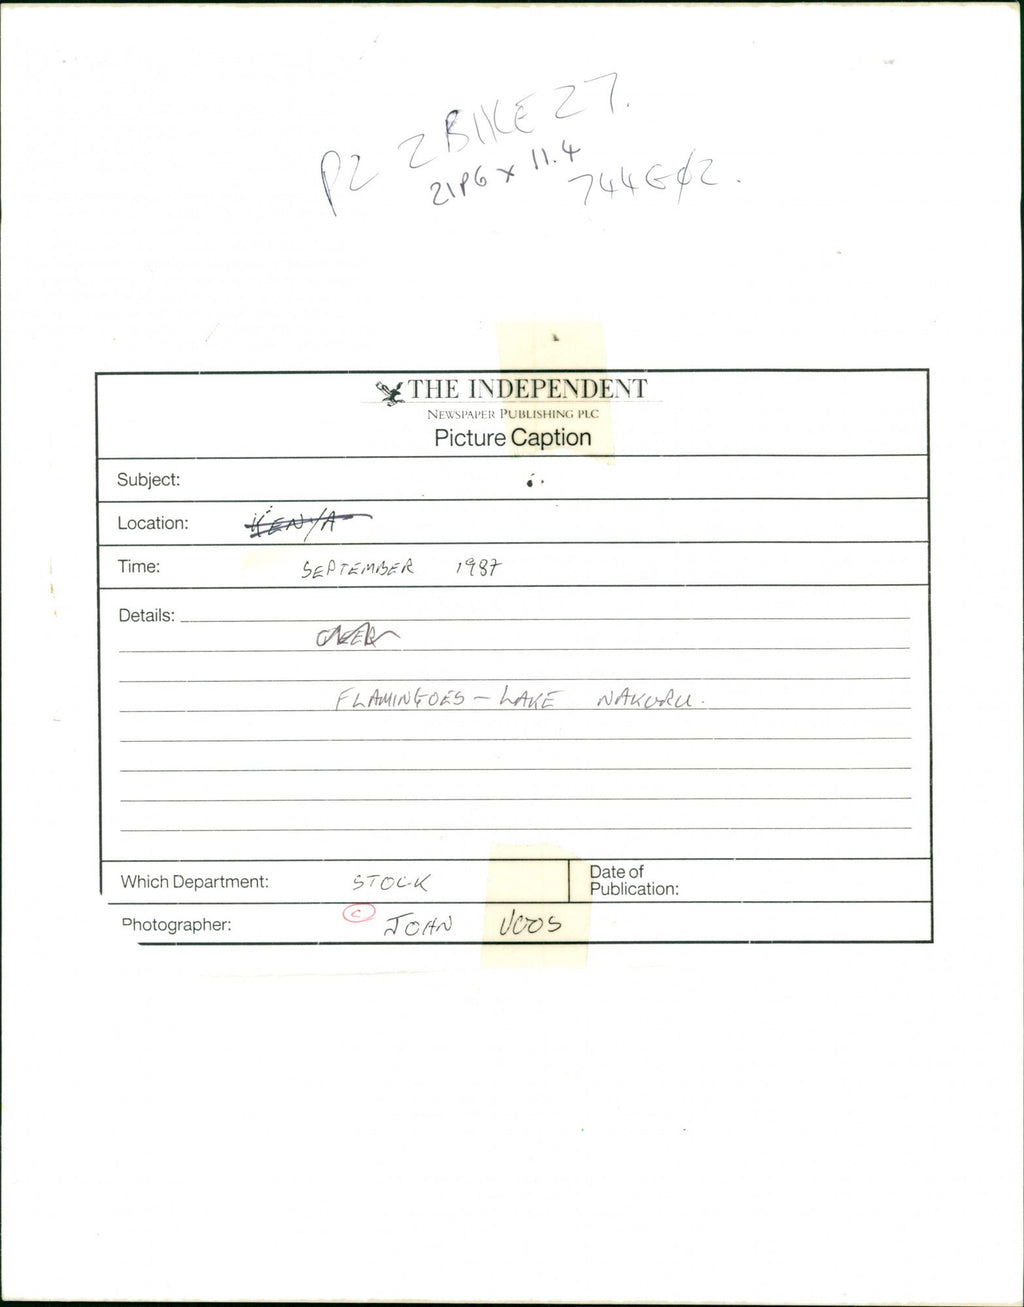 P2 2BIKE27.
21P6 x 11.4
744G02.
THE INDEPENDENT
NEWSPAPER PUBLISHING PLC
Picture Caption
Subject:
Location: KENYA
Time: SEPTEMBER 1987
Details:
FLAMINGOES - LAKE NAKURU.
Which Department: STOCK
Date of
Publication:
Photographer: © JOHN VOOS